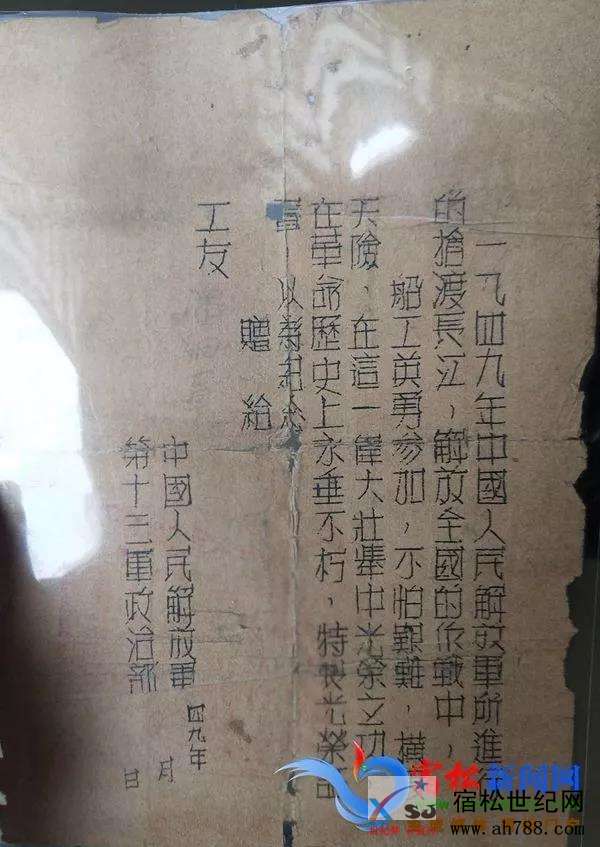 一九四九年中國人民解放軍所進行
的搶渡長江，解放全國的作戰中，
船工英勇參加，不怕艱難，橫
天險，在這一偉大壯舉中光榮之功
在革命歷史上永垂不朽，特製光榮
以為紀念
贈給
工友
中國人民解放軍
第十三軍政治部
四九年 月 日
宿松新闻网
宿松世纪网
www.ah788.com